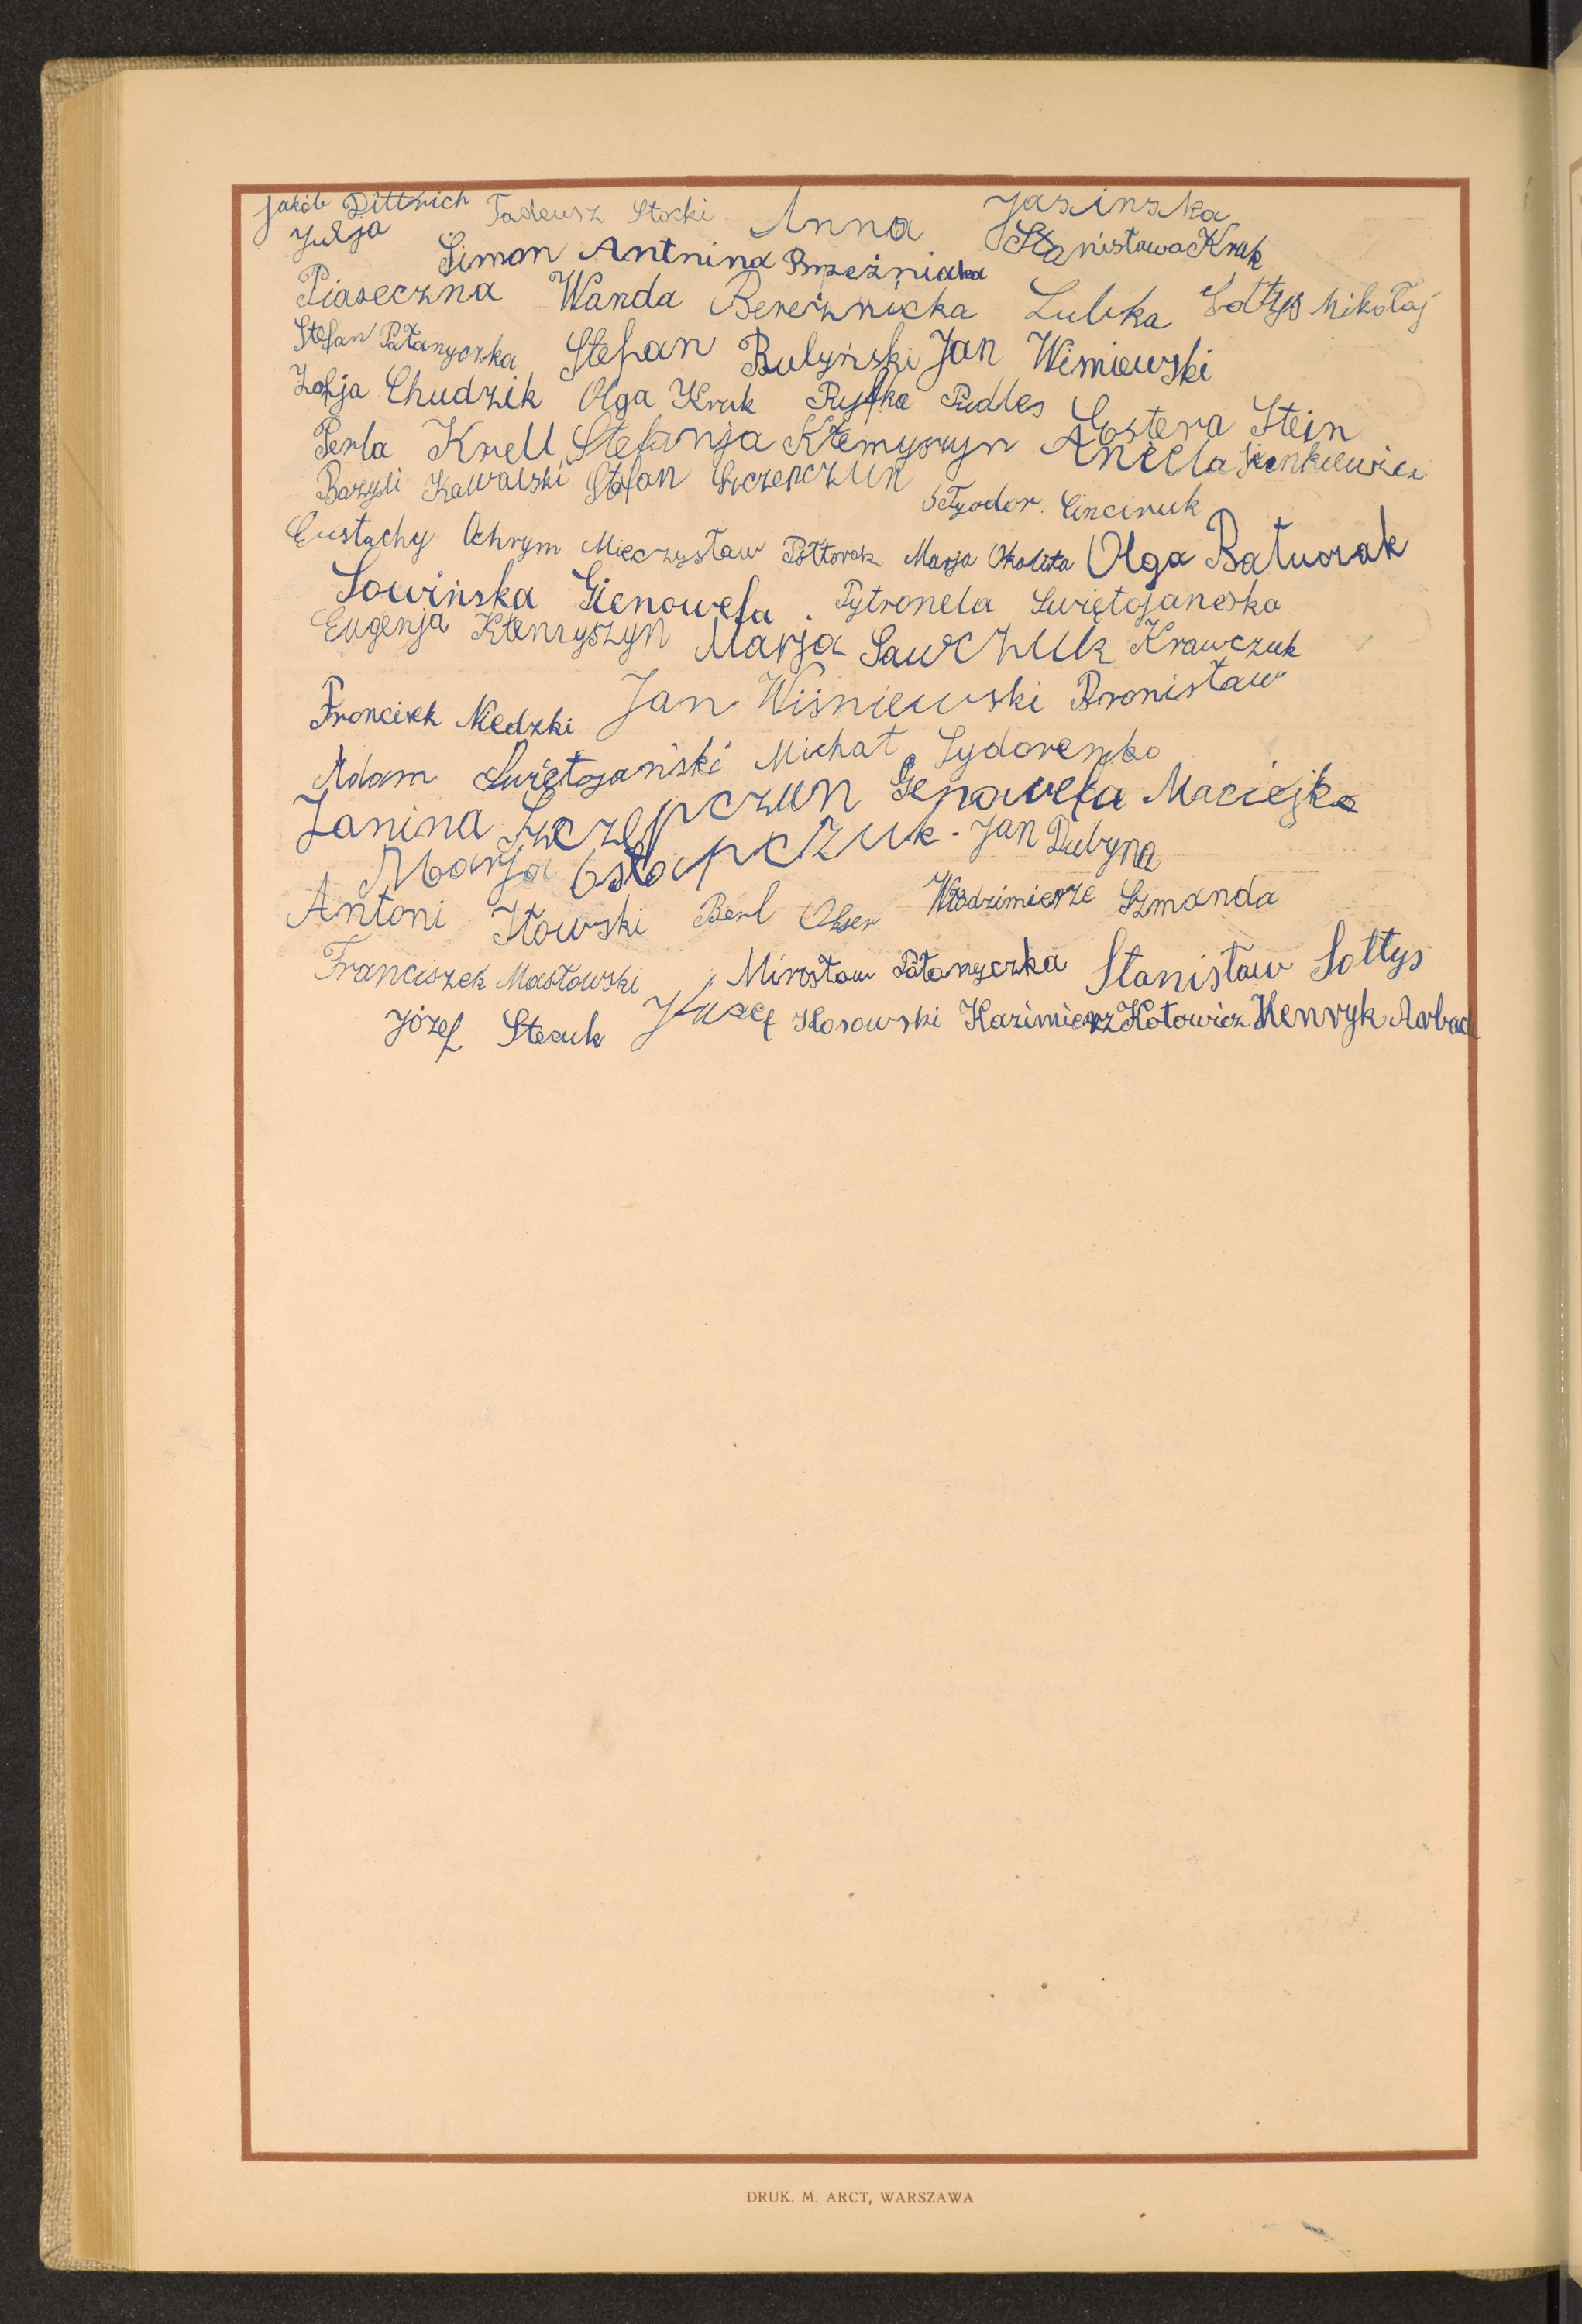 Jakób Dittrich Tadeusz Stocki Anna Jasinska
Julja Simon Antnina Brzeźniaka Stanisława Kruk
Piaseczna Wanda Bereźnicka Lubka Sołtys Mikołaj
Stefan Pałanyczka Stefan Bulyński Jan Wismiewski
Zofja Chudzik Olga Kruk Ryfka Pudles
Perla Krell Stefanja Kłemyszyn Estera Stein
Bazyli Kawalski Stefan Szczepczun Aniela Sienkiewicz
Tyodor. Cinciruk
Eustachy Ochrym Mieczysław Półtorak Marja Okolita Olga Baturak
Sowińska Gienowefa. Pytronela Swiętojaneska
Eugenja Kłemyszyn Marja Sawczuk Krawczuk
Froncisek Niedzki Jan Wiśniewski Bronisław
Adam Swiętojański Michał Sydorenko
Janina Szczepczun Genowefa Maciejko
Marja Ostapczuk - Jan Dubyna
Antoni Iłowski Berl Okser Włodzimierze Szmanda
Franciszek Masłowski Mirosław Pałanyczka Stanisław Sołtys
Józef Stecuk Józef Kosowski Kazimierz Kotowicz Henryk Aurbach
DRUK. M. ARCT, WARSZAWA